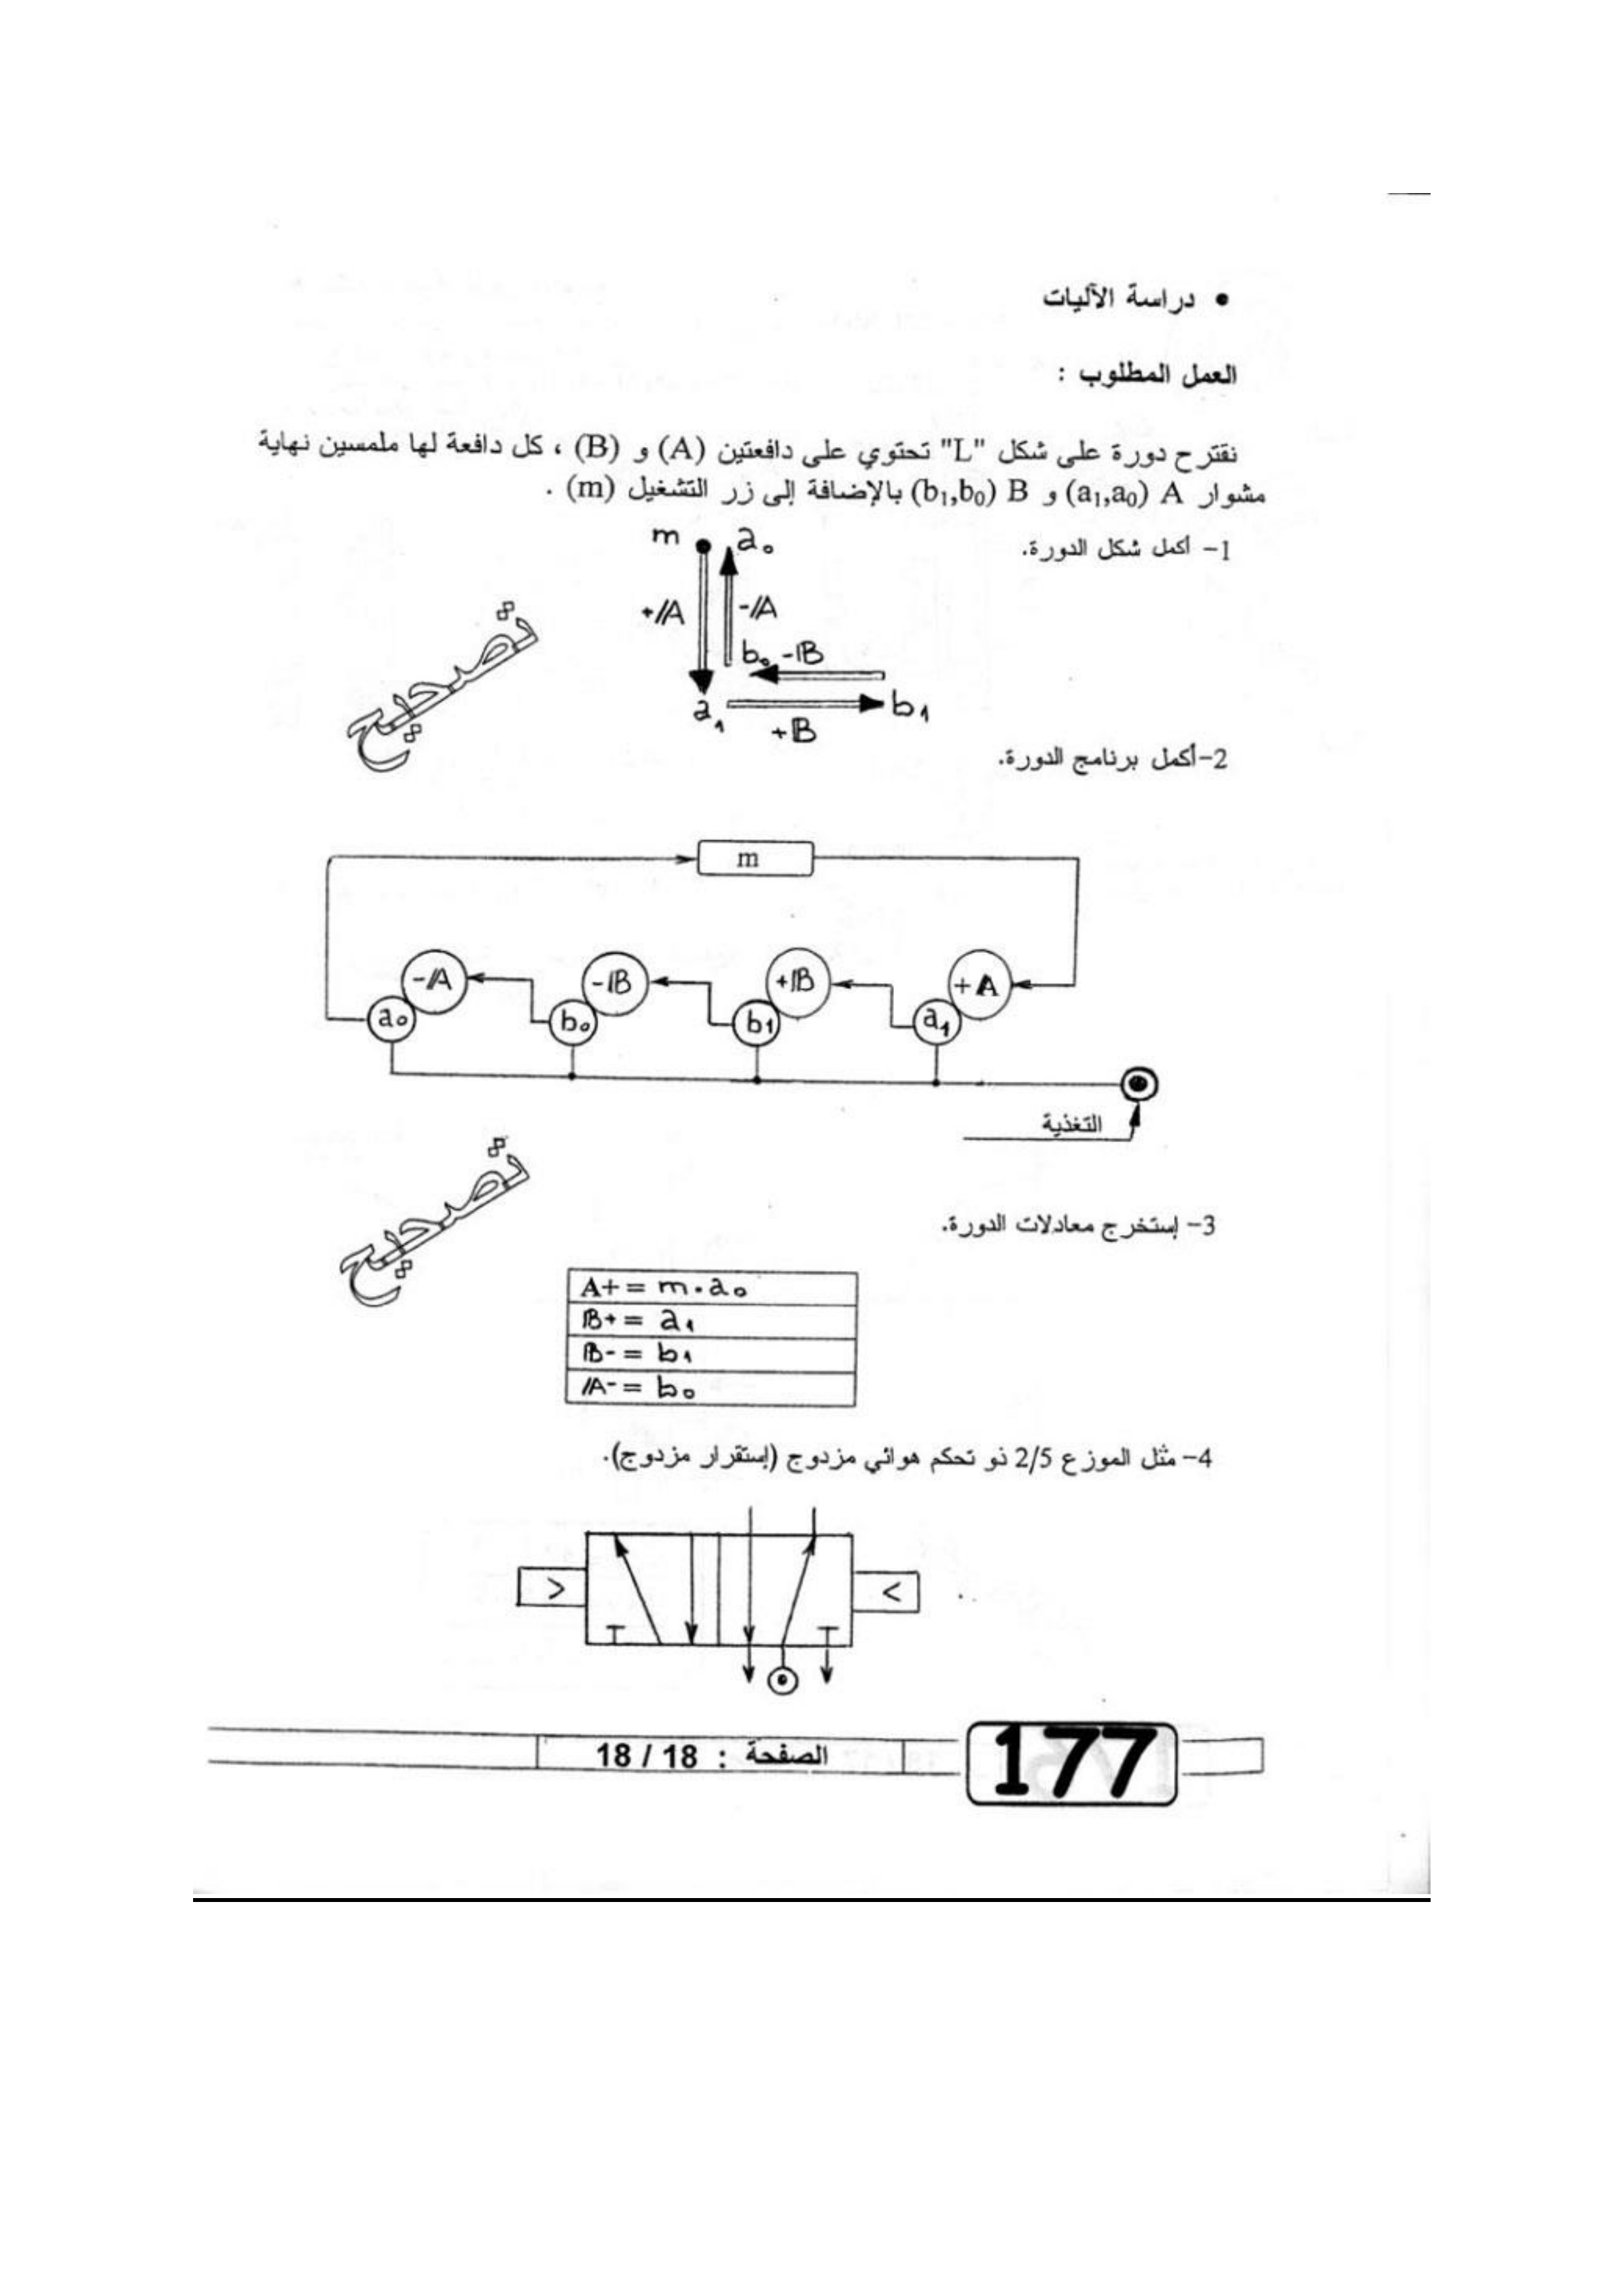 • دراسة الآليات
العمل المطلوب :
نقترح دورة على شكل "L" تحتوي على دافعتين (A) و (B) ، كل دافعة لها ملمسين نهاية
مشوار A (a₁,a₀) و B (b₁,b₀) بالإضافة إلى زر التشغيل (m) .
1- أكمل شكل الدورة.
m a₀
+A -A
b₀ -B
a₁ b₁
+B
تصحيح
2-أكمل برنامج الدورة.
m
-A -B +B +A
a₀ b₀ b₁ a₁
التغذية
تصحيح
3- إستخرج معادلات الدورة.
A+ = m . a₀
B+ = a₁
B- = b₁
A- = b₀
4- مثل الموزع 2/5 ذو تحكم هوائي مزدوج (إستقرار مزدوج).
> <
الصفحة : 18 / 18
177